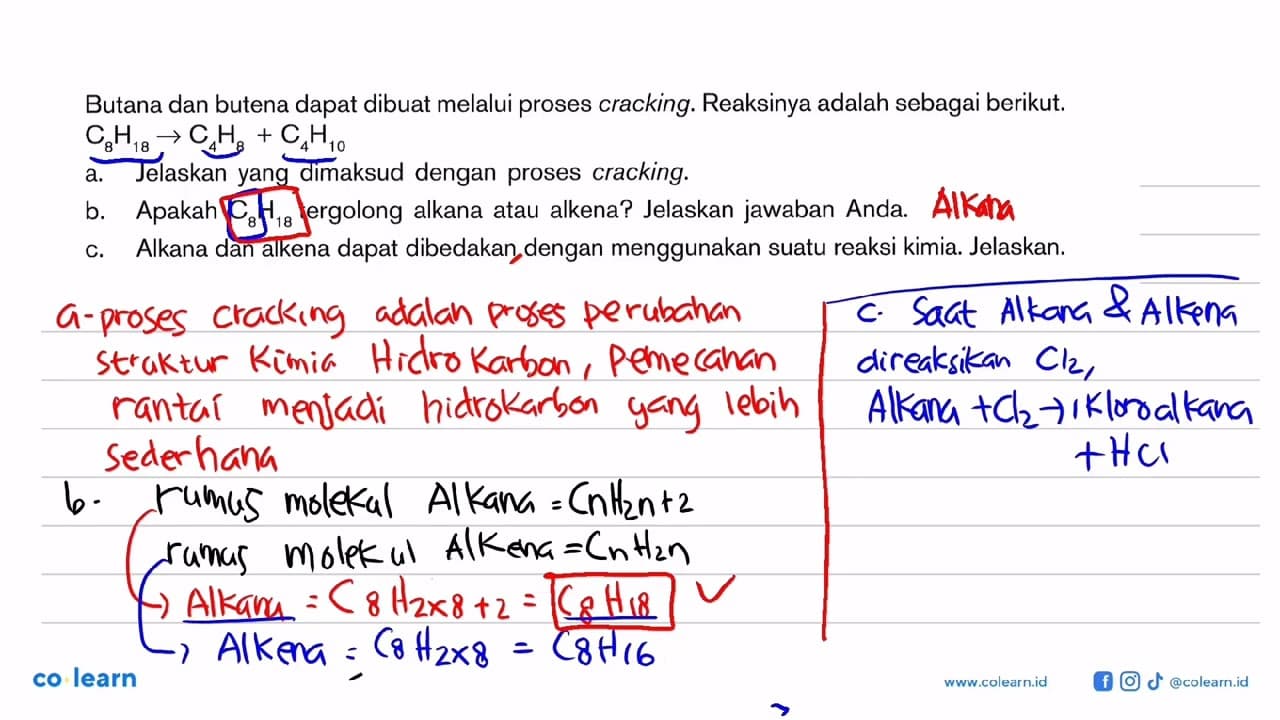 Butana dan butena dapat dibuat melalui proses cracking. Reaksinya adalah sebagai berikut.
C₈H₁₈ → C₄H₈ + C₄H₁₀
a. Jelaskan yang dimaksud dengan proses cracking.
b. Apakah C₈H₁₈ tergolong alkana atau alkena? Jelaskan jawaban Anda. Alkana
c. Alkana dan alkena dapat dibedakan dengan menggunakan suatu reaksi kimia. Jelaskan.
a- proses cracking adalah proses perubahan
struktur kimia Hidrokarbon, pemecahan
rantai menjadi hidrokarbon yang lebih
sederhana
b. rumus molekul Alkana = CnH2n+2
rumus molekul Alkena = CnH2n
→ Alkana = C8H2x8+2 = C8H18 ✓
→ Alkena = C8H2x8 = C8H16
c. Saat Alkana & Alkena
direaksikan Cl2,
Alkana + Cl2 → 1 Kloroalkana
+ HCl
co·learn
www.colearn.id @colearn.id